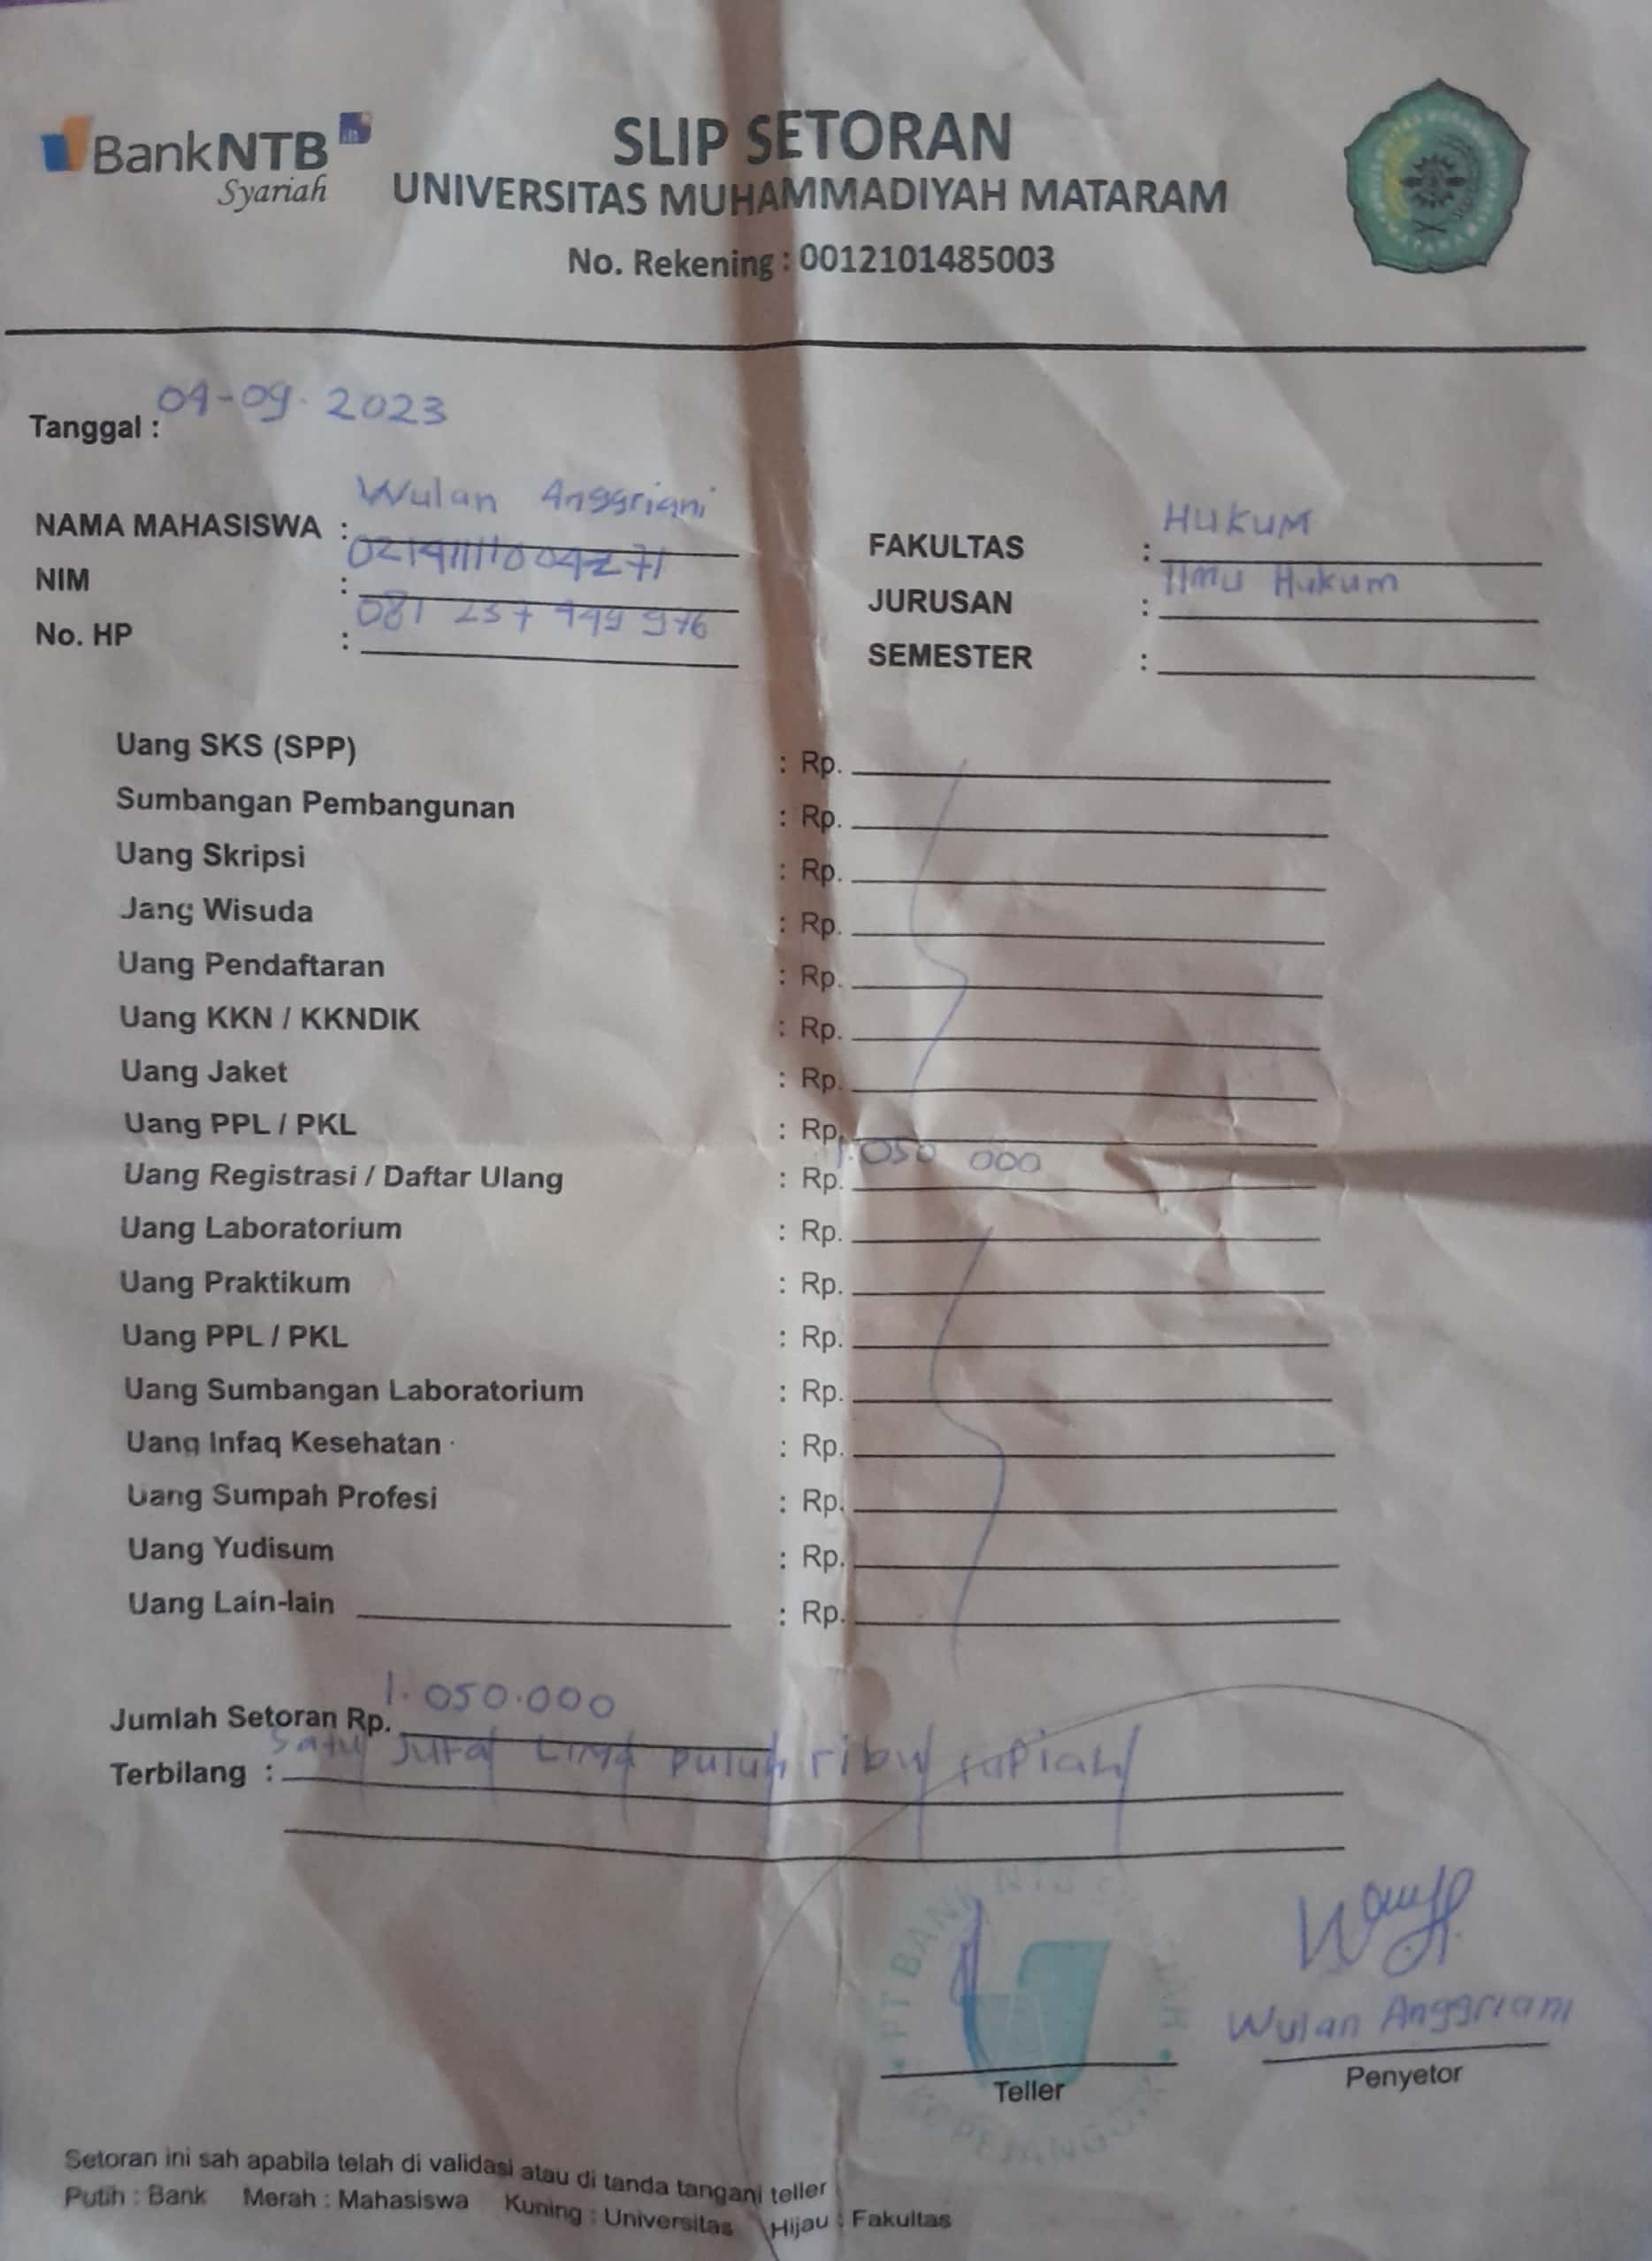 BankNTB
Syariah
SLIP SETORAN
UNIVERSITAS MUHAMMADIYAH MATARAM
No. Rekening : 0012101485003
Tanggal : 04-09. 2023
NAMA MAHASISWA : Wulan Anggriani
NIM :
No. HP : 081 237 949 976
FAKULTAS : HUKUM
JURUSAN : Ilmu Hukum
SEMESTER :
Uang SKS (SPP) : Rp.
Sumbangan Pembangunan : Rp.
Uang Skripsi : Rp.
Uang Wisuda : Rp.
Uang Pendaftaran : Rp.
Uang KKN / KKNDIK : Rp.
Uang Jaket : Rp.
Uang PPL / PKL : Rp.
Uang Registrasi / Daftar Ulang : Rp. 1.050 000
Uang Laboratorium : Rp.
Uang Praktikum : Rp.
Uang PPL / PKL : Rp.
Uang Sumbangan Laboratorium : Rp.
Uang Infaq Kesehatan : Rp.
Uang Sumpah Profesi : Rp.
Uang Yudisum : Rp.
Uang Lain-lain : Rp.
Jumlah Setoran Rp. 1.050.000
Terbilang : Satu Juta Lima puluh ribu rupiah
PT BANK NTB
Wulan Anggriani
Teller
Penyetor
Setoran ini sah apabila telah di validasi atau di tanda tangani teller
Putih : Bank Merah : Mahasiswa Kuning : Universitas Hijau : Fakultas